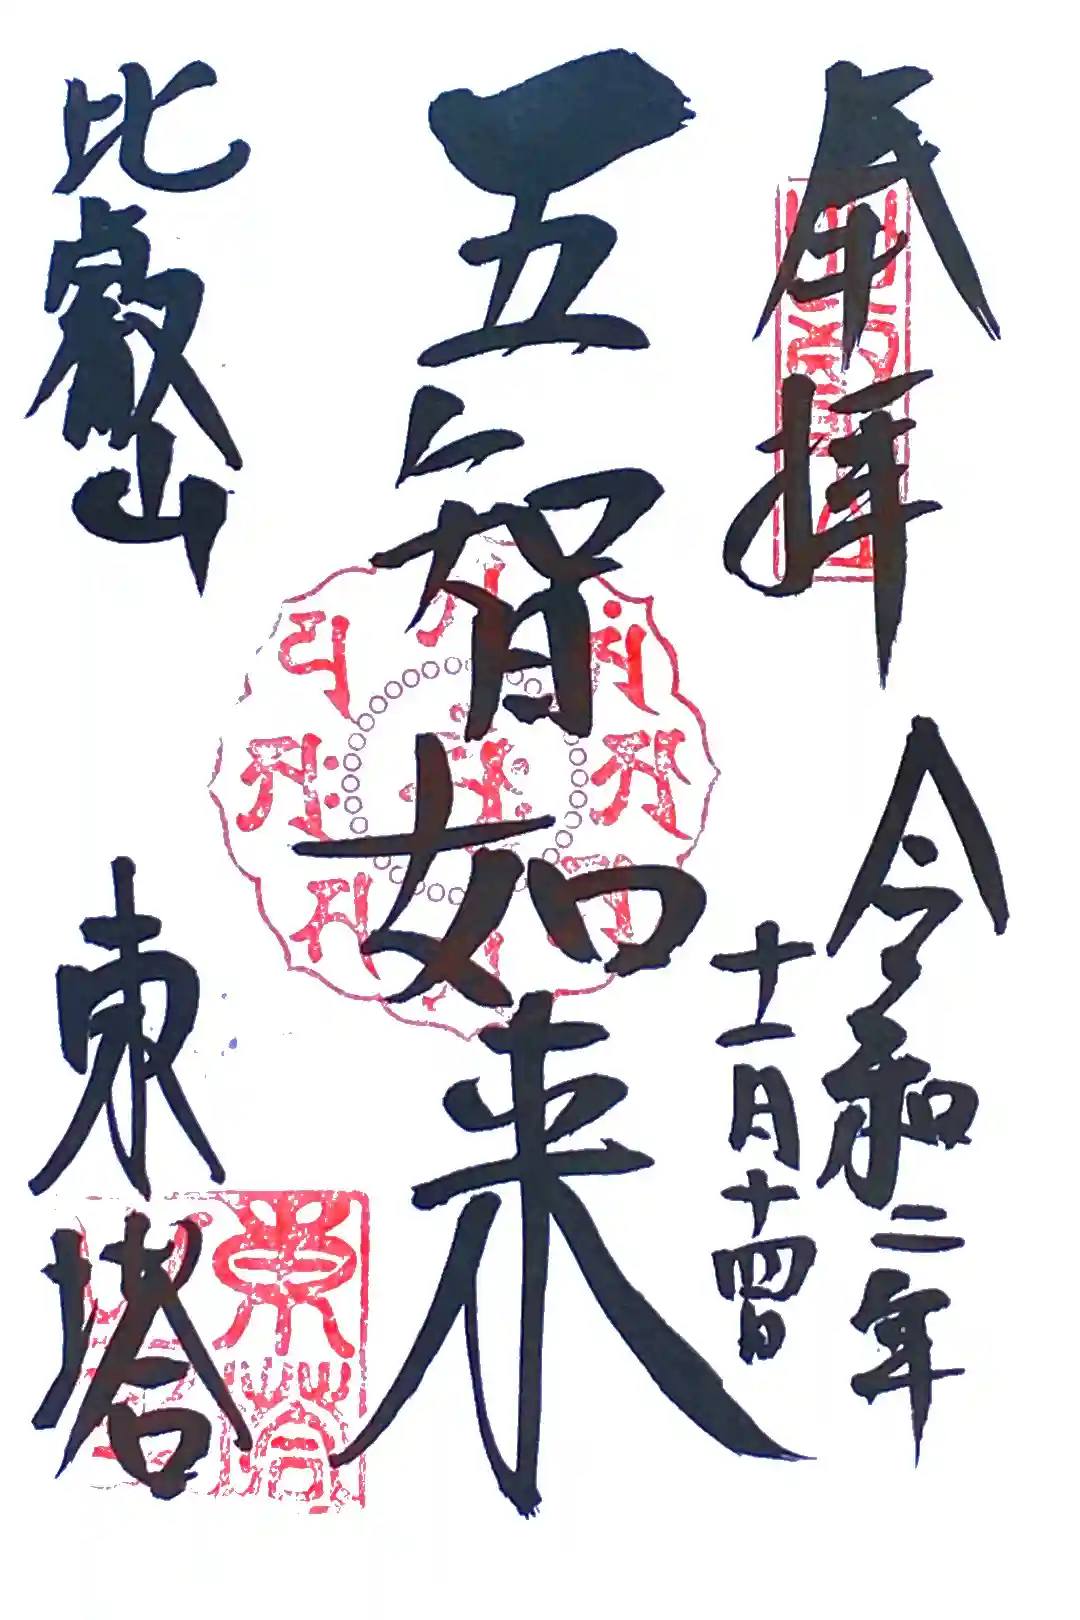 奉拝
令和二年
十一月十四日
五智如来
比叡山
東塔